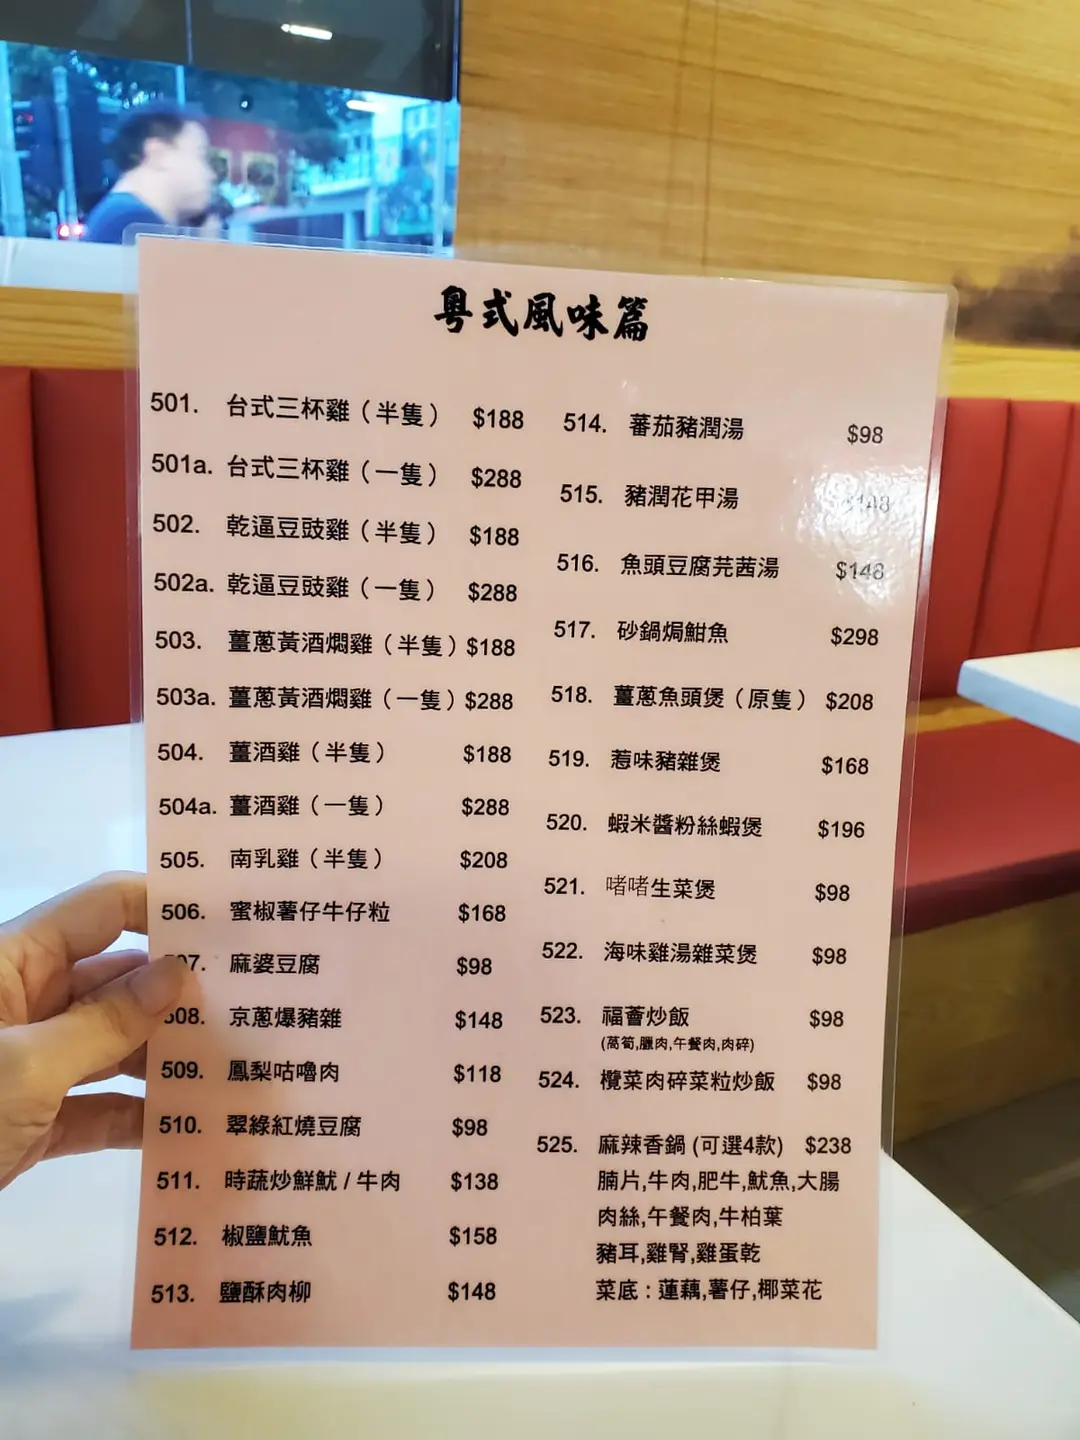 粵式風味篇
501. 台式三杯雞（半隻） $188
501a. 台式三杯雞（一隻） $288
502. 乾逼豆豉雞（半隻） $188
502a. 乾逼豆豉雞（一隻） $288
503. 薑蔥黃酒燜雞（半隻） $188
503a. 薑蔥黃酒燜雞（一隻） $288
504. 薑酒雞（半隻） $188
504a. 薑酒雞（一隻） $288
505. 南乳雞（半隻） $208
506. 蜜椒薯仔牛仔粒 $168
507. 麻婆豆腐 $98
508. 京蔥爆豬雜 $148
509. 鳳梨咕嚕肉 $118
510. 翠綠紅燒豆腐 $98
511. 時蔬炒鮮魷 / 牛肉 $138
512. 椒鹽魷魚 $158
513. 鹽酥肉柳 $148
514. 蕃茄豬潤湯 $98
515. 豬潤花甲湯 $148
516. 魚頭豆腐芫茜湯 $148
517. 砂鍋焗魽魚 $298
518. 薑蔥魚頭煲（原隻） $208
519. 惹味豬雜煲 $168
520. 蝦米醬粉絲蝦煲 $196
521. 啫啫生菜煲 $98
522. 海味雞湯雜菜煲 $98
523. 福薈炒飯 $98
(萵筍,臘肉,午餐肉,肉碎)
524. 欖菜肉碎菜粒炒飯 $98
525. 麻辣香鍋 (可選4款) $238
腩片,牛肉,肥牛,魷魚,大腸
肉絲,午餐肉,牛柏葉
豬耳,雞腎,雞蛋乾
菜底：蓮藕,薯仔,椰菜花